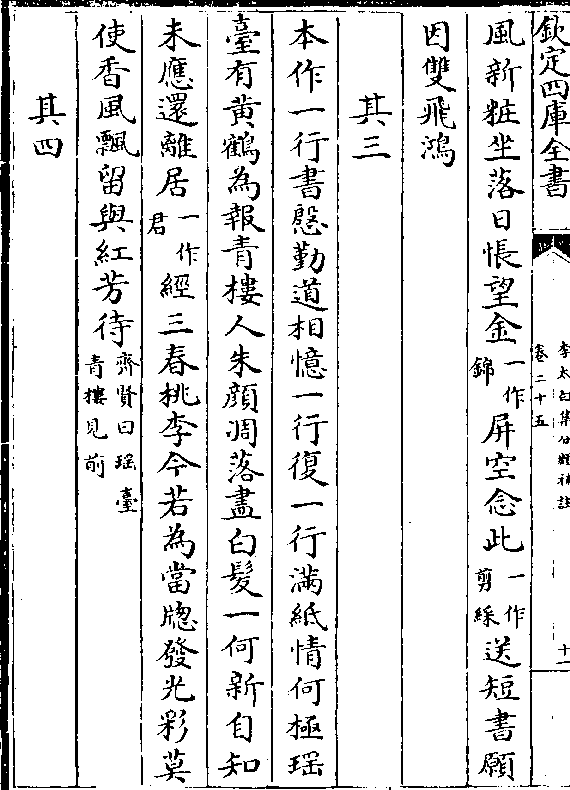 欽定四庫全書
李太白集分類補註
卷二十五
十一
風新粧坐落日悵望金一作錦屏空念此一作剪綵送短書願
因雙飛鴻
其三
本作一行書慇勤道相憶一行復一行滿紙情何極瑶
臺有黄鶴為報青樓人朱顔凋落盡白髮一何新自知
未應還離居一作君經三春桃李今若為當牕發光彩莫
使香風飄留與紅芳待齊賢曰瑶臺青樓見前
其四